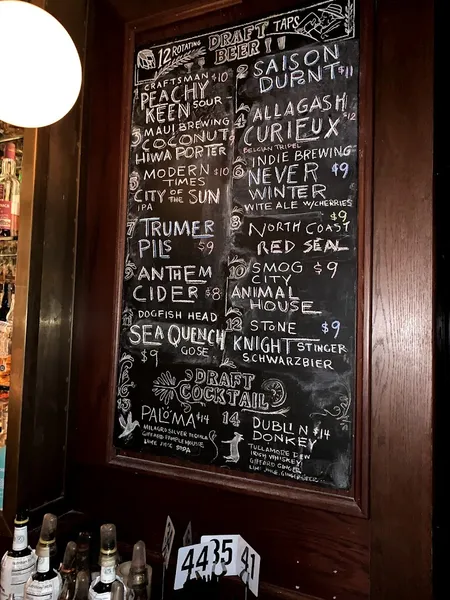 12 ROTATING DRAFT BEER TAPS
1 CRAFTSMAN $10
PEACHY
KEEN SOUR
2 SAISON
DUPONT $11
3 MAUI BREWING
COCONUT
HIWA PORTER
4 ALLAGASH
CURIEUX $12
BELGIAN TRIPEL
5 MODERN $10
TIMES
CITY OF THE SUN
IPA
6 INDIE BREWING
NEVER $9
WINTER
WITE ALE W/CHERRIES
7 TRUMER
PILS $9
8 NORTH COAST $9
RED SEAL
9 ANTHEM
CIDER $8
10 SMOG $9
CITY
ANIMAL
HOUSE
11 DOGFISH HEAD
SEA QUENCH
$9 GOSE
12 STONE $9
KNIGHT STINGER
SCHWARZBIER
DRAFT
COCKTAIL
13 PALOMA $14
MILAGRO SILVER TEQUILA
LIME JUICE
14 DUBLIN $14
DONKEY
TULLAMORE DEW
IRISH WHISKEY
GIFFARD GINGER
LIME JUICE, GINGER BEER
44
35
41